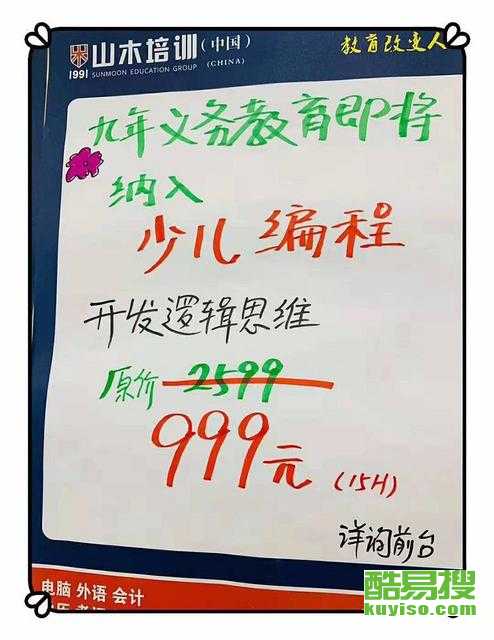 山木培训（中国）
1991 SUNMOON EDUCATION GROUP (CHINA)
教育改变人
九年义务教育即将
纳入
少儿编程
开发逻辑思维
原价 2599
999元 (15H)
详询前台
电脑 外语 会计
酷易搜
kuyiso.com